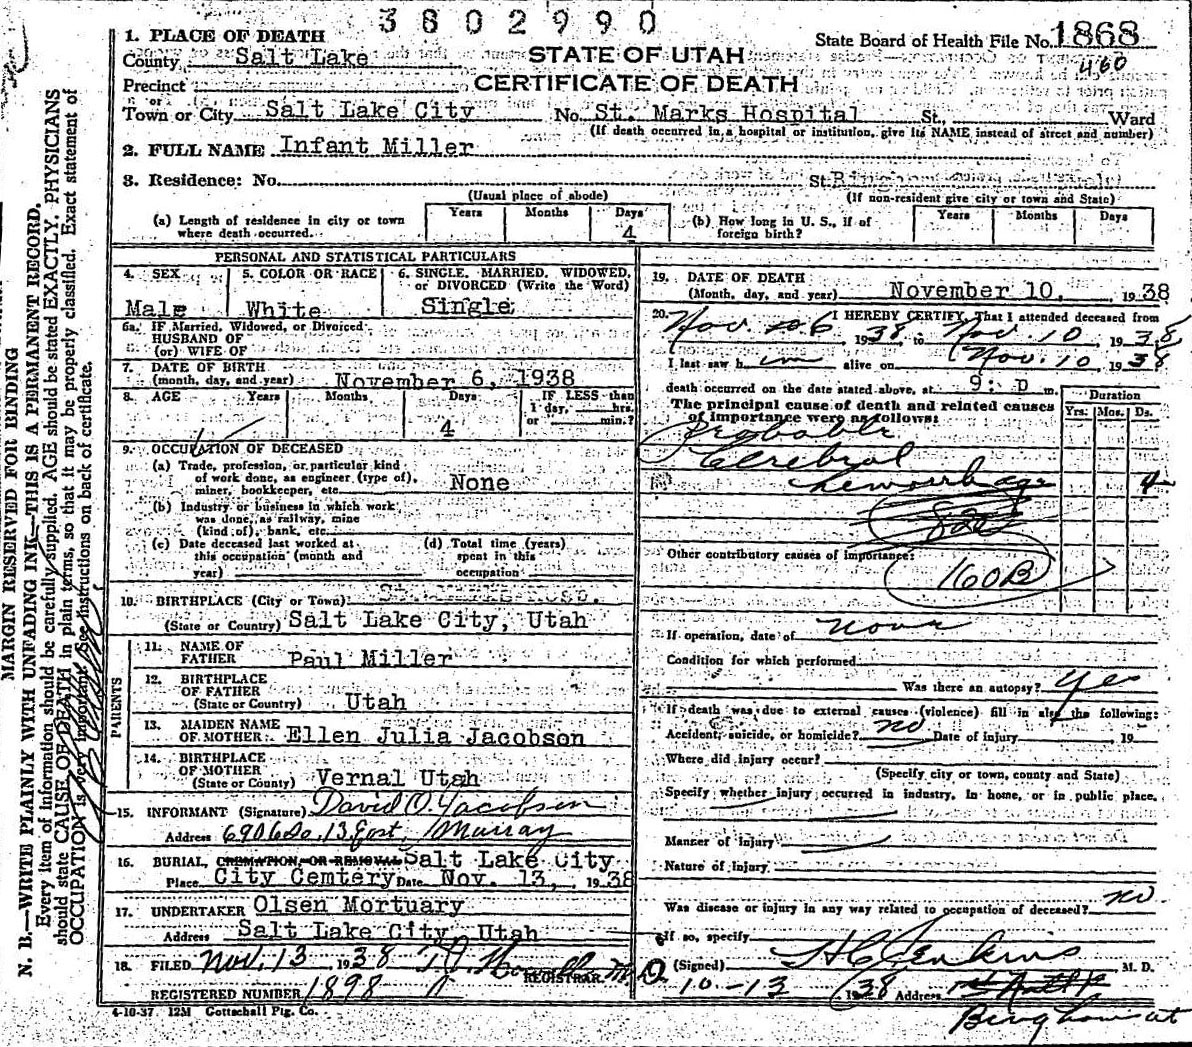 3802990
1. PLACE OF DEATH
County Salt Lake
STATE OF UTAH
CERTIFICATE OF DEATH
State Board of Health File No. 1868
460
Precinct
or
Town or City Salt Lake City No. St. Marks Hospital St., Ward
(If death occurred in a hospital or institution, give its NAME instead of street and number)
2. FULL NAME Infant Miller
3. Residence: No. St.
(Usual place of abode) (If non-resident give city or town and State)
(a) Length of residence in city or town where death occurred. Years Months Days 4
(b) How long in U. S., if of foreign birth? Years Months Days
PERSONAL AND STATISTICAL PARTICULARS
4. SEX Male
5. COLOR OR RACE White
6. SINGLE, MARRIED, WIDOWED, or DIVORCED (Write the Word) Single
6a. IF Married, Widowed, or Divorced
HUSBAND OF
(or) WIFE OF
7. DATE OF BIRTH
(month, day, and year) November 6, 1938
8. AGE Years Months Days 4
IF LESS than 1 day, hrs. or min.?
9. OCCUPATION OF DECEASED
(a) Trade, profession, or particular kind of work done, as engineer (type of), miner, bookkeeper, etc. None
(b) Industry or business in which work was done, as railway, mine (kind of), bank, etc.
(c) Date deceased last worked at this occupation (month and year)
(d) Total time (years) spent in this occupation
10. BIRTHPLACE (City or Town)
(State or Country) Salt Lake City, Utah
PARENTS
11. NAME OF FATHER Paul Miller
12. BIRTHPLACE OF FATHER
(State or Country) Utah
13. MAIDEN NAME OF MOTHER Ellen Julia Jacobson
14. BIRTHPLACE OF MOTHER
(State or County) Vernal Utah
15. INFORMANT (Signature) David O. Jacobson
Address 6906 So. 13 East Murray
16. BURIAL, CREMATION, OR REMOVAL Salt Lake City
Place City Cemtery Date Nov. 13, 1938
17. UNDERTAKER Olsen Mortuary
Address Salt Lake City, Utah
18. FILED Nov. 13 1938 M. D. REGISTRAR.
REGISTERED NUMBER 1898
4-10-37 12M Gottschall Ptg. Co.
19. DATE OF DEATH
(Month, day, and year) November 10, 1938
20. I HEREBY CERTIFY, That I attended deceased from
Nov. 6 1938, to Nov. 10, 1938
I last saw him alive on Nov. 10 1938
death occurred on the date stated above, at 9: p m.
The principal cause of death and related causes of importance were as follows:
Duration
Yrs. Mos. Ds.
Probable
Cerebral
hemorrhage 4
Other contributory causes of importance:
160B
If operation, date of none
Condition for which performed
Was there an autopsy? yes
If death was due to external causes (violence) fill in also the following:
Accident, suicide, or homicide? no Date of injury 19
Where did injury occur?
(Specify city or town, county and State)
Specify whether injury occurred in industry, in home, or in public place.
Manner of injury
Nature of injury
Was disease or injury in any way related to occupation of deceased? no
If so, specify
(Signed) H C Jenkins M. D.
10-13 1938 Address
Bingham ut
MARGIN RESERVED FOR BINDING
N. B.—WRITE PLAINLY WITH UNFADING INK—THIS IS A PERMANENT RECORD.
Every item of information should be carefully supplied. AGE should be stated EXACTLY. PHYSICIANS
should state CAUSE OF DEATH in plain terms, so that it may be properly classified. Exact statement of
OCCUPATION is very important. See instructions on back of certificate.